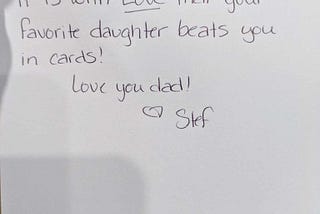 It is with Love that your
favorite daughter beats you
in cards!
Love you dad!
♡ Stef